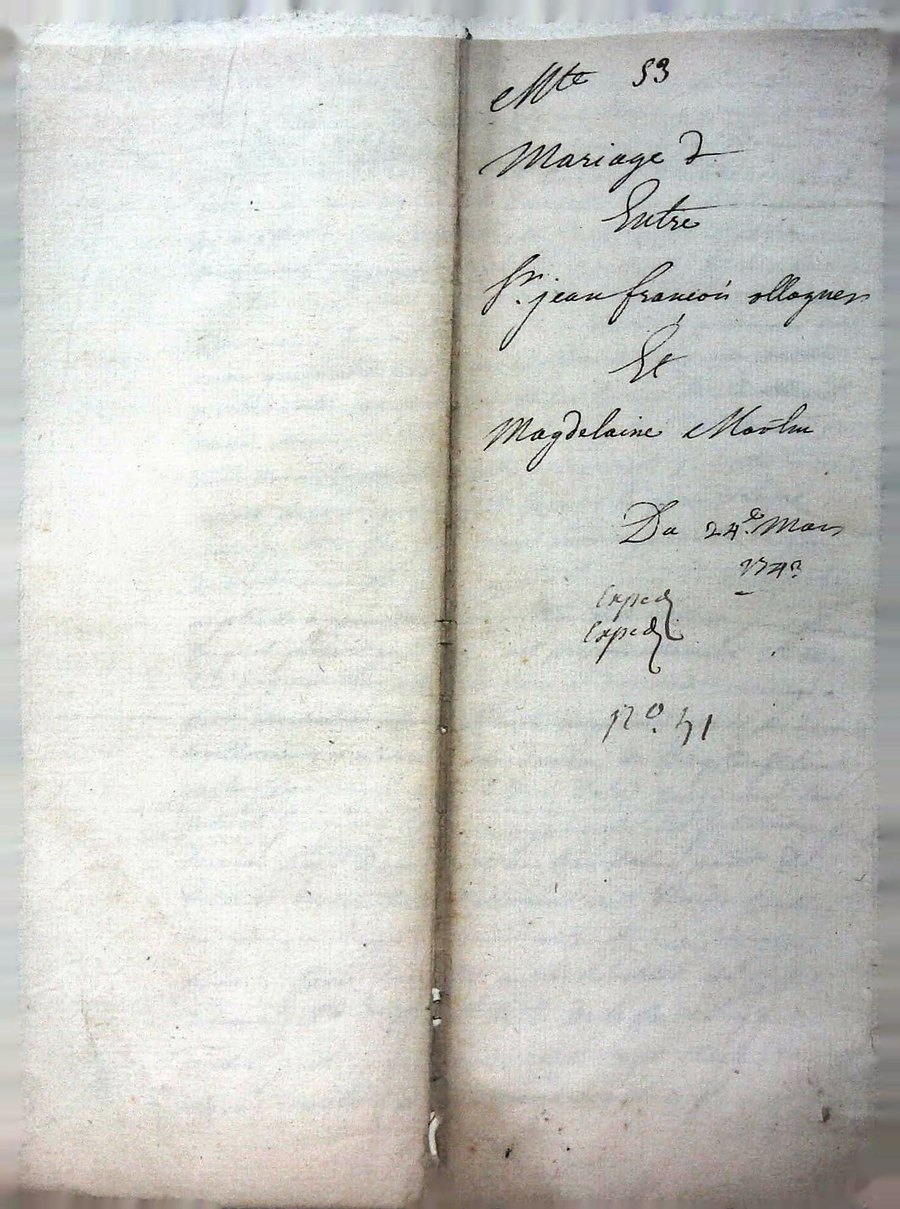 Mte 53
Mariage
Entre
Sr. jean françois ollagner
Et
Magdelaine
Du 24e. Mars
174
Exped
Exped
No. 51